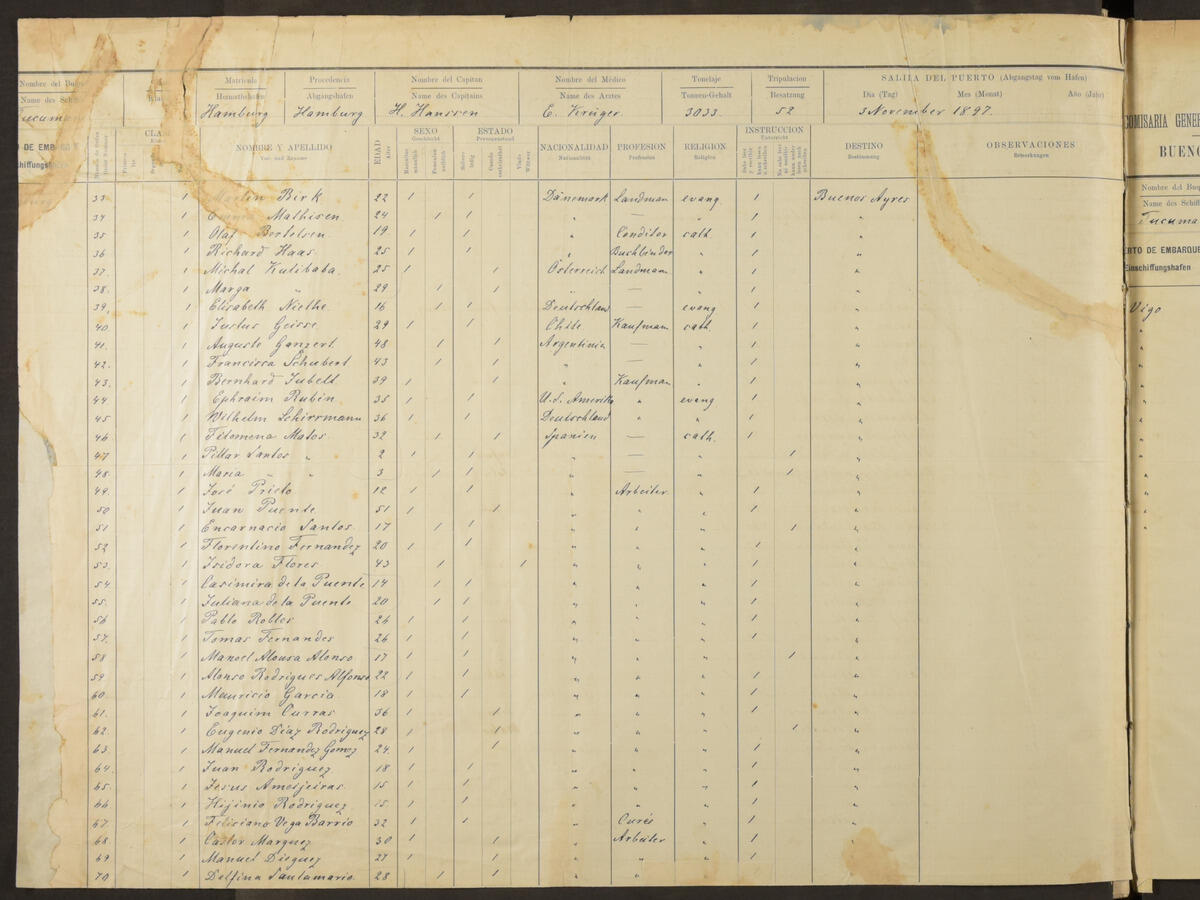 Nombre del Matricula Procedencia Nombre del Capitan Nombre del Médico Tonelaje Tripulacion SALIIA DEL PUERTO (Abgangstag vom Hafen)
Name des Heimathshafen Abgangshafen Name des Capitains Name des Arztes Tonnen-Gehalt Besatzung Dia (Tag) Mes (Monat) Año (Jahr)
Hamburg Hamburg H. Hanssen E. Krüger 3033 52 3 November 1897.
SEXO ESTADO INSTRUCCION
NOMBRE Y APELLIDO EDAD NACIONALIDAD PROFESION RELIGION DESTINO OBSERVACIONES
Vor- und Zuname Alter Nationalität Profession Religion Bestimmung Bemerkungen
1 Birk 22 1 1 Dänemark Landman evang. 1 Buenos Ayres
34 1 Mathisen 24 1 1 " — " 1 "
35 1 Olaf Bertelsen 19 1 1 " Conditor cath. 1 "
36 1 Richard Haas 25 1 1 " Buchbinder " 1 "
37. 1 Michal Kulibaba 25 1 1 Österreich Landmann " 1 "
38. 1 Marga " 29 1 1 " — " 1 "
39. 1 Elisabeth Niethe 16 1 1 — evang 1 "
40. 1 Justus Geisse 29 1 1 Chile Kaufmann cath. 1 "
41. 1 Auguste Ganzert 48 1 1 Argentinia — " 1 "
42. 1 Francisca Schubert 43 1 1 " — " 1 "
43. 1 Bernhard Jubelt 39 1 1 " Kaufman " 1 "
44 1 Ephraim Rubin 35 1 1 U.d. Amerika " evang 1 "
45 1 Wilhelm Schirrmann 36 1 1 Deutschland " " 1 "
46 1 Filomena Matos 32 1 1 Spanien — cath. 1 "
47 1 Pillar Santos " 2 1 1 " — " 1 "
48. 1 Maria " " 3 1 1 " — " 1 "
49. 1 José Prieto 12 1 1 " Arbeiter " 1 "
50 1 Juan Puente 51 1 1 " " " 1 "
51 1 Encarnacio Santos 17 1 1 " " " 1 "
52 1 Florentino Fernandez 20 1 1 " " " 1 "
53. 1 Isidora Flores 43 1 1 " " " 1 "
54 1 Casimira de la Puente 14 1 1 " " " 1 "
55. 1 Juliana de la Puente 20 1 1 " " " 1 "
56 1 Pablo Robles 26 1 1 " " " 1 "
57. 1 Tomas Fernandes 26 1 1 " " " 1 "
58 1 Manoel Alousa Alonso 17 1 1 " " " 1 "
59 1 Alonso Rodrigues Alfonso 22 1 1 " " " 1 "
60 1 Mauricio Garcia 18 1 1 " " " 1 "
61. 1 Joaquim Curras 36 1 1 " " " 1 "
62. 1 Eugenio Diaz Rodriguez 28 1 1 " " " 1 "
63. 1 Manuel Fernandez Gomez 24. 1 1 " " " 1 "
64. 1 Juan Rodriguez 18 1 1 " " " 1 "
65. 1 Jesus Amesjeiras 15 1 1 " " " 1 "
66 1 Hijinio Rodriguez 15 1 1 " " " 1 "
67 1 Feliciano Vega Barrio 32 1 1 " Curé " 1 "
68 1 Castor Marquez 30 1 1 " Arbeiter " 1 "
69 1 Manuel Dieguez 27 1 1 " " " 1
70 1 Delfina Santamario 28 1 1 " " " 1
COMISARIA GENER
BUENO
Nombre del Buq
Name des Schiff
Tucuma
RTO DE EMBARQUE
Einschiffungshafen
Vigo